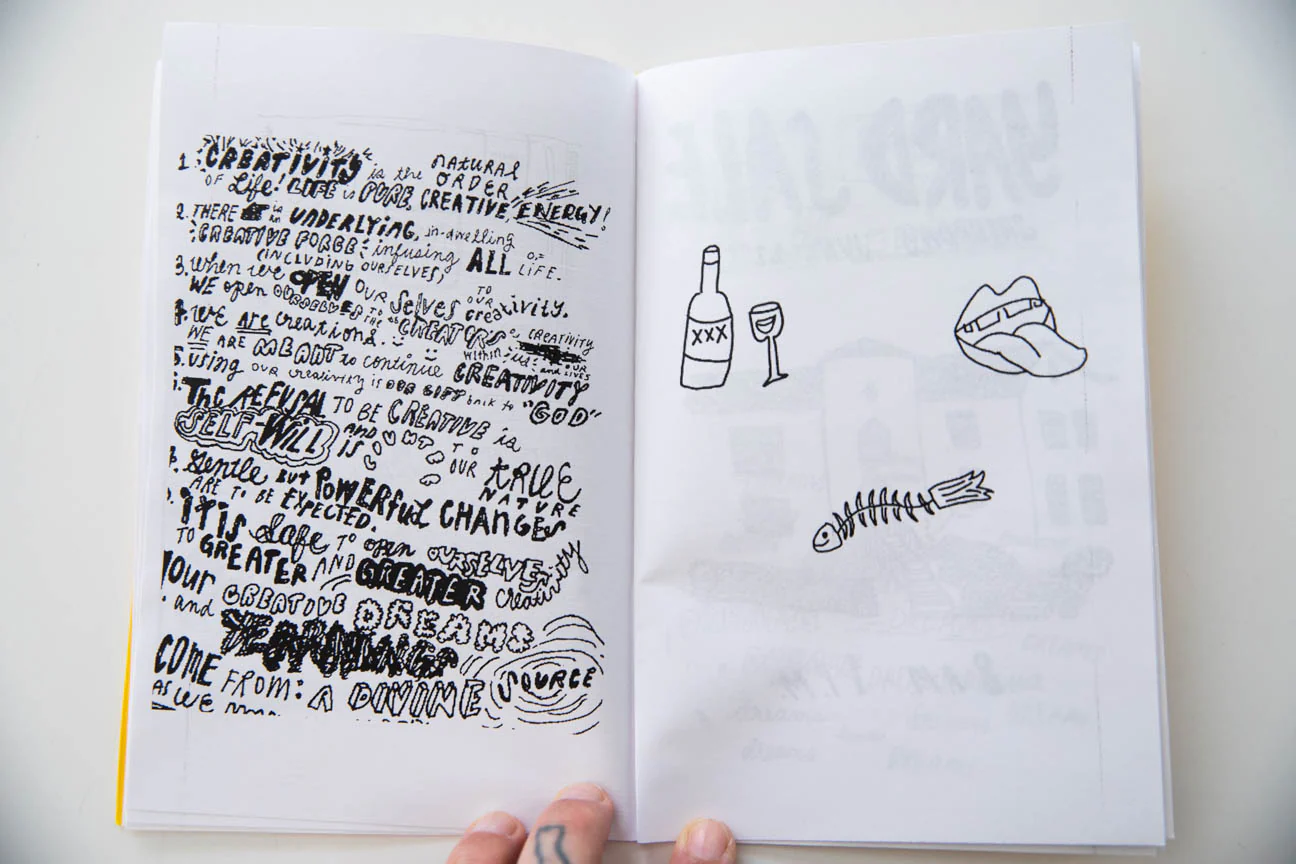 1. CREATIVITY is the NATURAL ORDER
OF Life! LIFE is PURE, CREATIVE, ENERGY!
2. THERE is an UNDERLYING, in-dwelling
CREATIVE FORCE infusing ALL OF LIFE.
(INCLUDING OURSELVES,
3. When we OPEN OUR selves TO OUR creativity.
WE open OURSELVES TO THE CREATORS CREATIVITY
4. WE are creations. within us and OUR LIVES
WE ARE MEANT to continue CREATIVITY
5. using OUR creativity is OUR GIFT back to "GOD"
The REFUSAL TO BE CREATIVE is
SELF-WILL AND IS TO OUR TRUE NATURE
Gentle BUT POWERFUL CHANGES
ARE TO BE EXPECTED.
IT IS Safe TO open OURSELVES
TO GREATER AND GREATER Creativity
Your CREATIVE DREAMS
and YEARNINGS
COME FROM: A DIVINE SOURCE
AS WE
XXX
YARD SALE